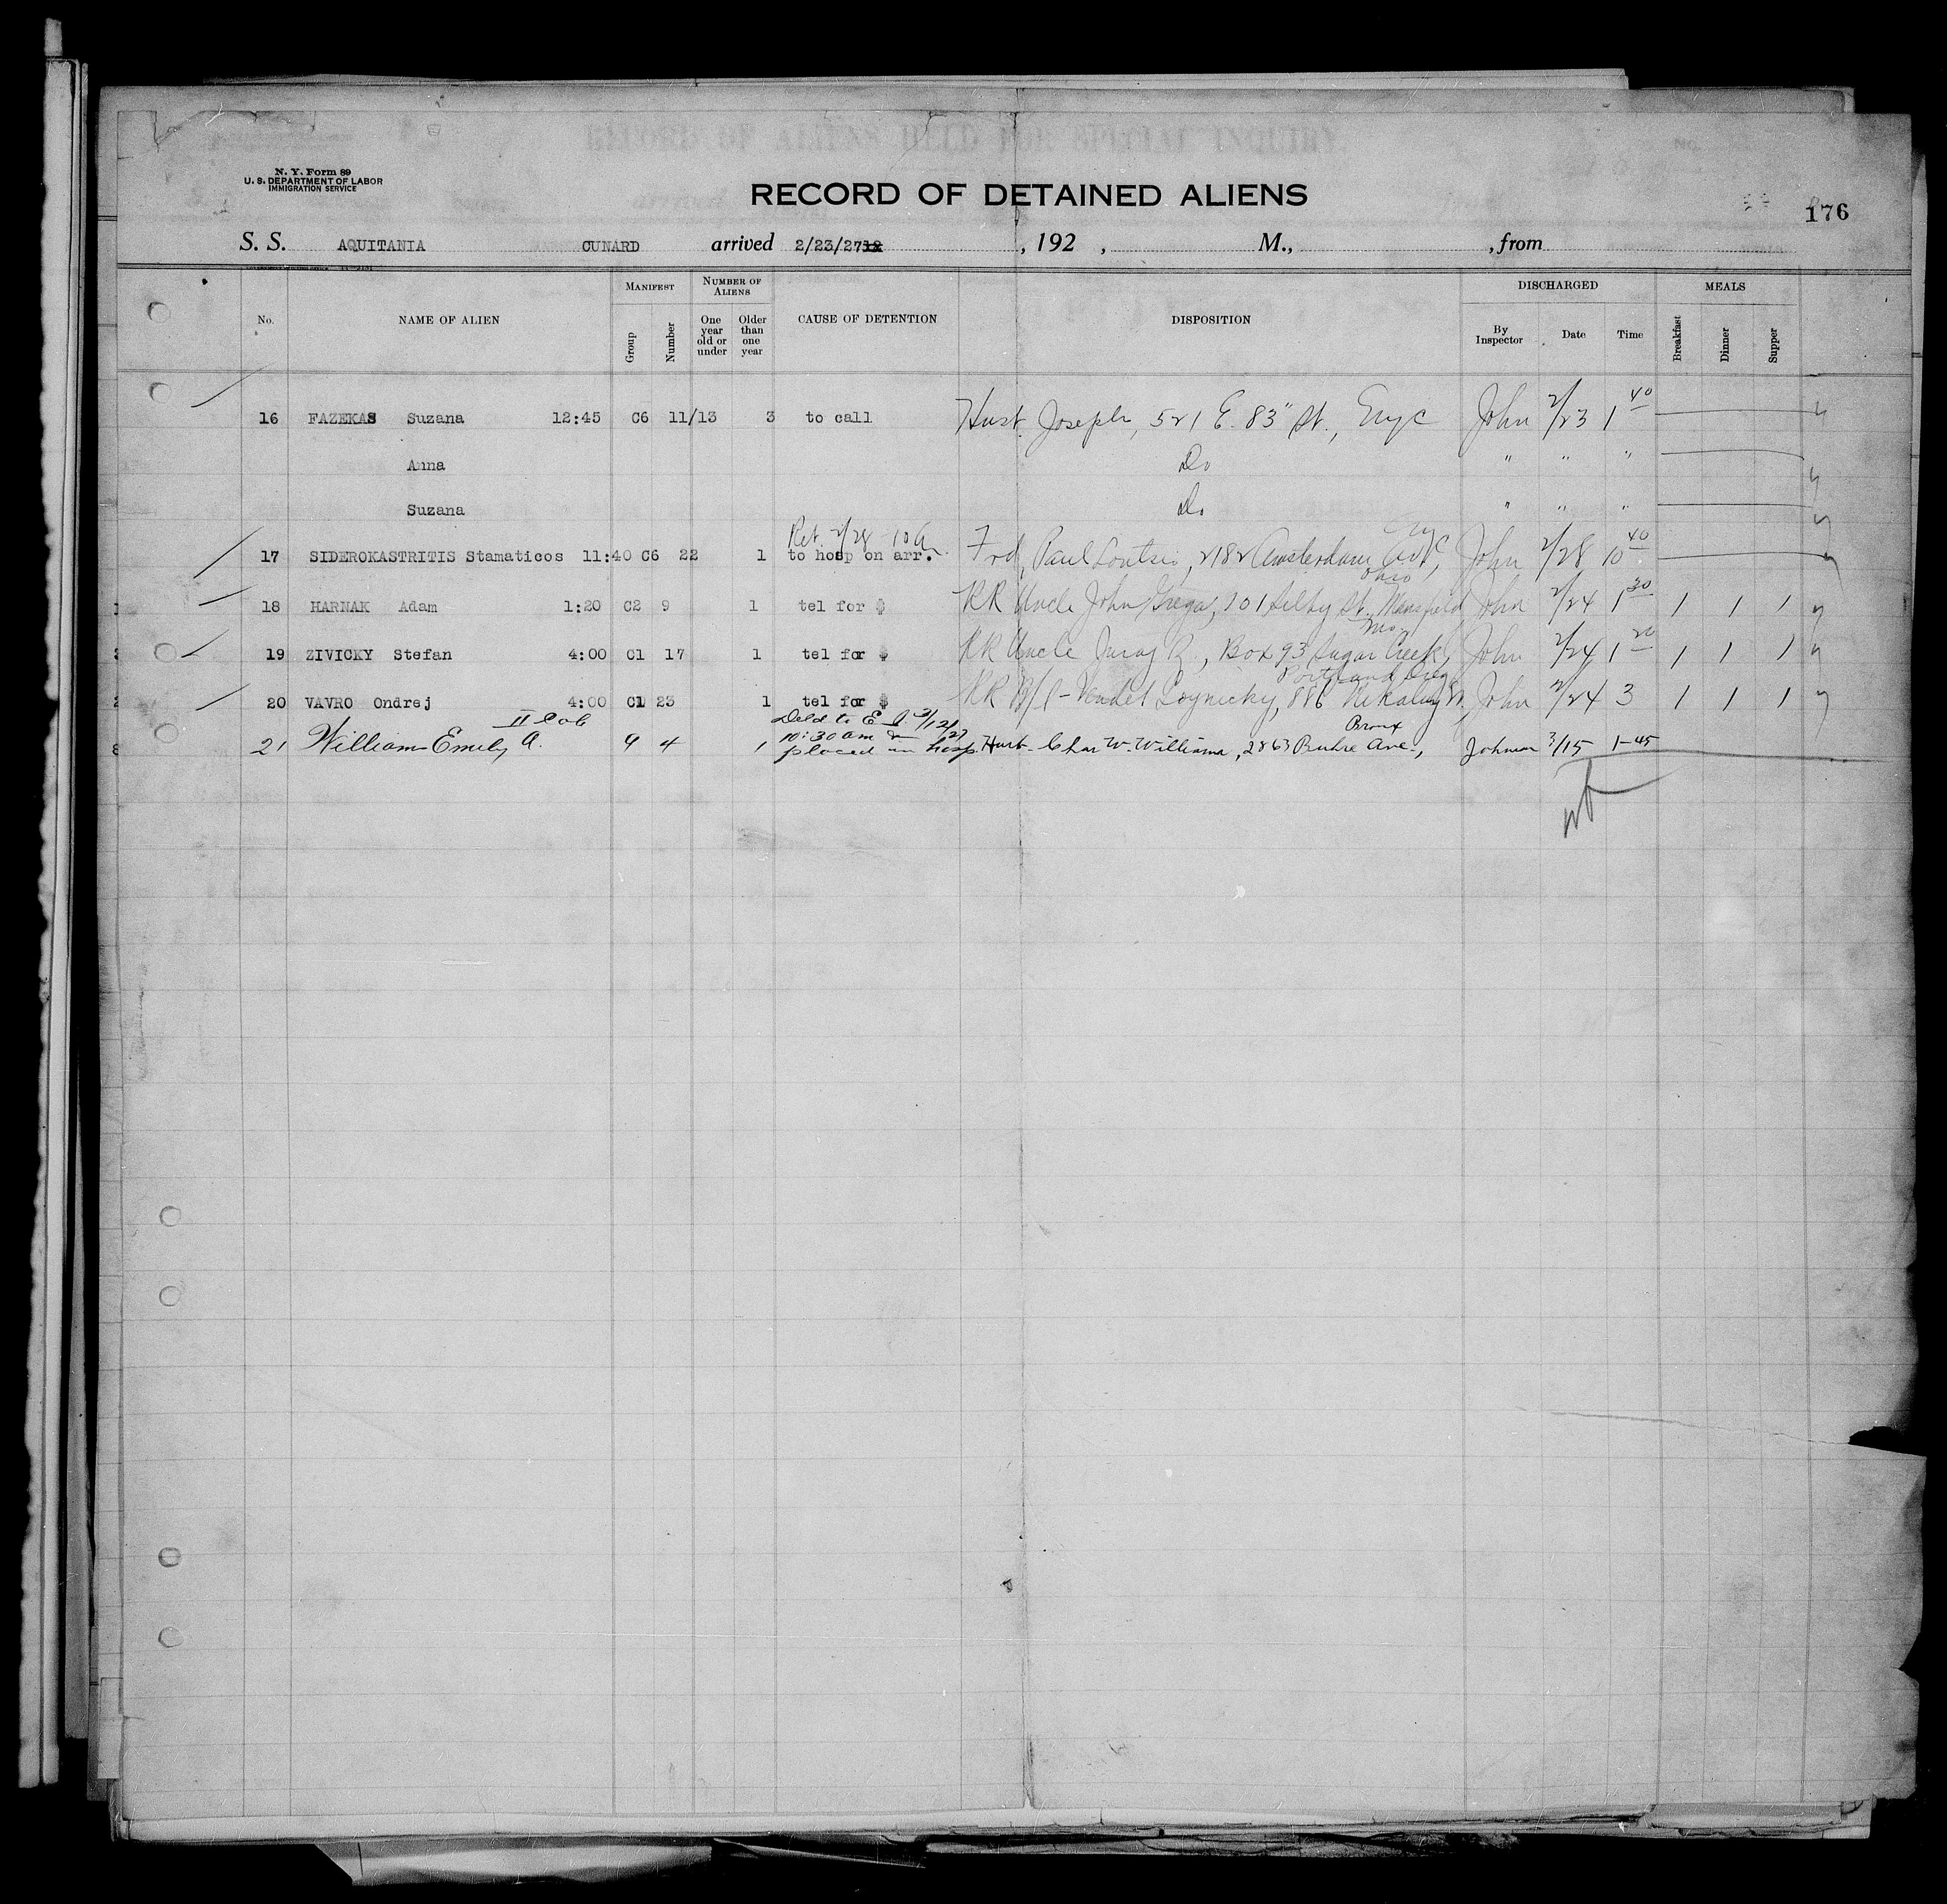 N. Y. Form 89
U. S. DEPARTMENT OF LABOR
IMMIGRATION SERVICE
RECORD OF DETAINED ALIENS
176
S. S. AQUITANIA CUNARD arrived 2/23/27 , 192 , M., , from
MANIFEST NUMBER OF ALIENS DISCHARGED MEALS
No. NAME OF ALIEN Group Number One year old or under Older than one year CAUSE OF DETENTION DISPOSITION By Inspector Date Time Breakfast Dinner Supper
16 FAZEKAS Suzana 12:45 C6 11/13 3 to call Husb. Joseph, 521 E. 83" St., Nyc John 2/23 1 40
Anna Do " " "
Suzana Do " " "
Ret. 2/28 10 a. Nyc
17 SIDEROKASTRITIS Stamaticos 11:40 C6 22 1 to hosp on arr. Frd Paul 2182 Amsterdam Ave, John 2/28 10 40
Ohio
18 HARNAK Adam 1:20 C2 9 1 tel for $ RR Uncle John Grega, 101 Selby St. Mansfield, John 2/24 1 30 1 1 1
Mo.
19 ZIVICKY Stefan 4:00 C1 17 1 tel for $ RR Uncle Juraj Z., Box 93 Sugar Creek, John 2/24 1 20 1 1 1
Portland Oreg
20 VAVRO Ondrej 4:00 C1 23 1 tel for $ RR B/l - Vendel 886 John 2/24 3 1 1 1
II Cab Deld to E. I. 3/12/27
10:30 am & Bronx
21 William Emily A. 9 4 1 placed in hosp. Husb. Chas W. Williams, 2863 Buhre Ave., Johnson 3/15 1-45